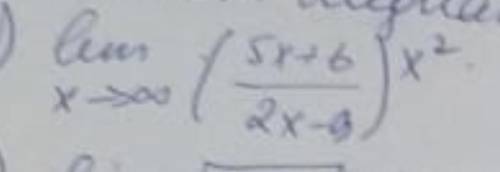 ) lim x→∞ ( (5x+6)/(2x-9) ) x².